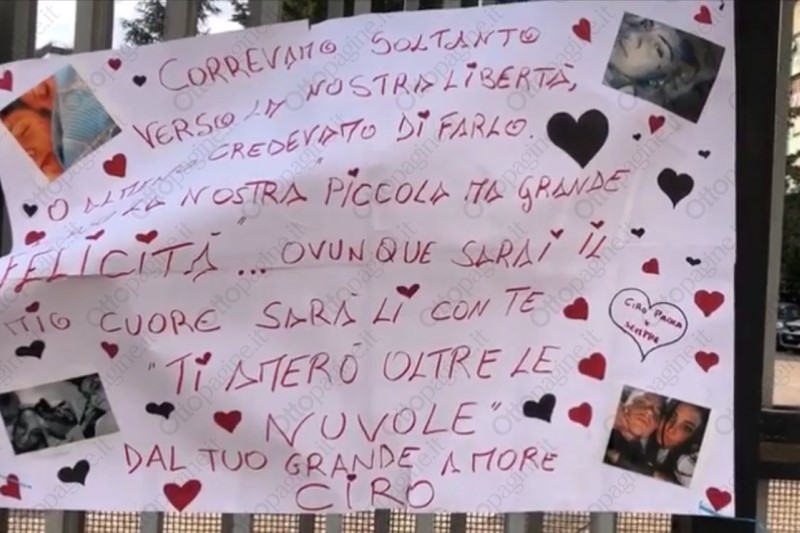 CORREVAMO SOLTANTO
VERSO LA NOSTRA LIBERTÀ,
O ALMENO CREDEVAMO DI FARLO.
LA NOSTRA PICCOLA MA GRANDE
FELICITÀ... OVUNQUE SARAI IL
MIO CUORE SARÀ LÌ CON TE
CIRO PAOLA
X
SEMPRE
"TI AMERÒ OLTRE LE
NUVOLE"
DAL TUO GRANDE AMORE
CIRO
Ottopagine.it